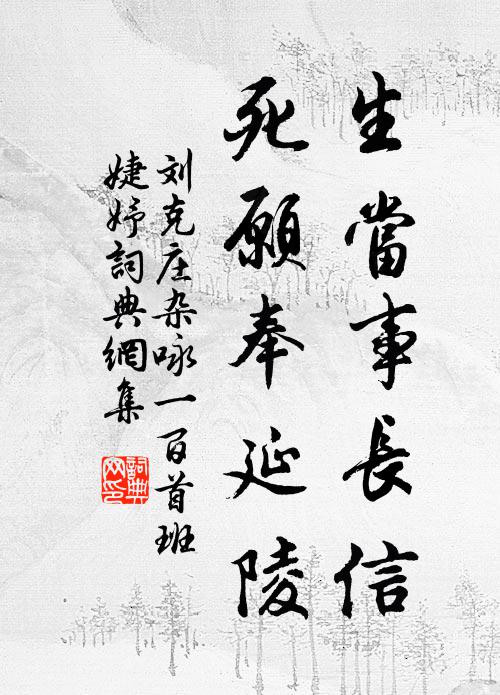 生當事長信
死願奉延陵
刘克庄杂咏一百首班
婕妤詞典網集
詞典
网印